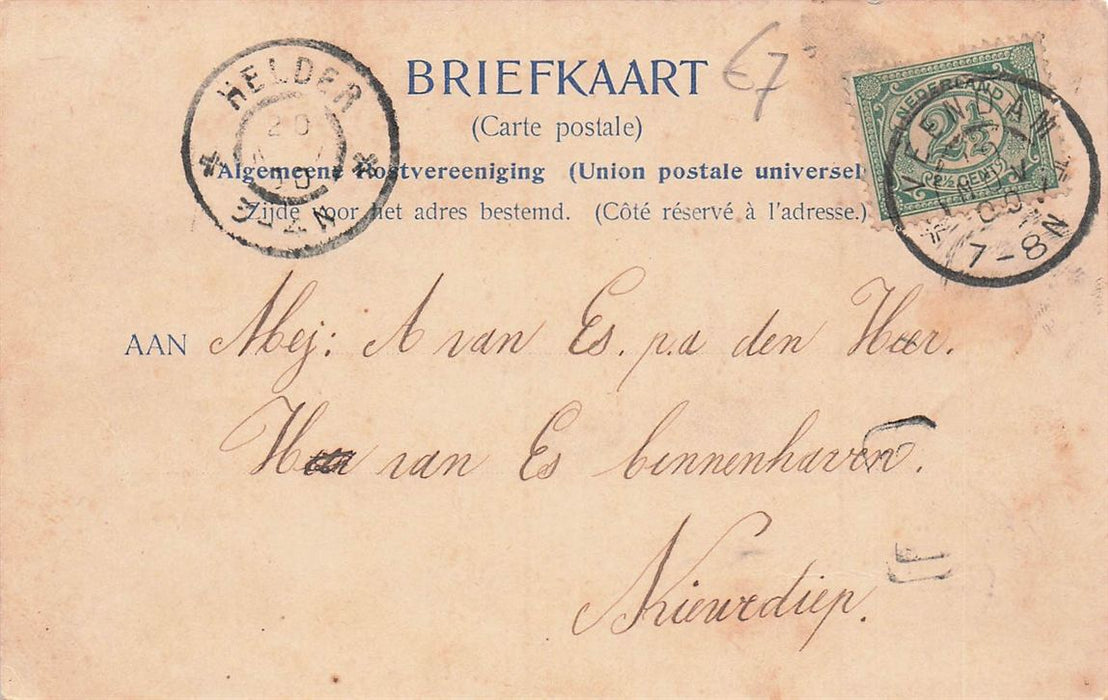 BRIEFKAART
(Carte postale)
Algemeene Postvereeniging (Union postale universel
Zijde voor het adres bestemd. (Côté réservé à l'adresse.)
€7
HELDER
20
NEDERLAND
2½
(2½ CENT)
VEENDAM
7-8N
AAN Mej: A van Es. p.a den Heer.
H van Es binnenhaven.
Nieuwediep.